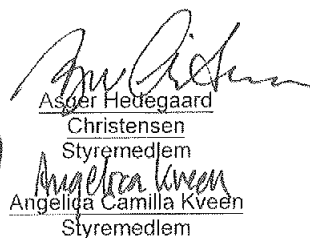 Asger Hedegaard
Christensen
Styremedlem
Angelica Kveen
Angelica Camilla Kveen
Styremedlem